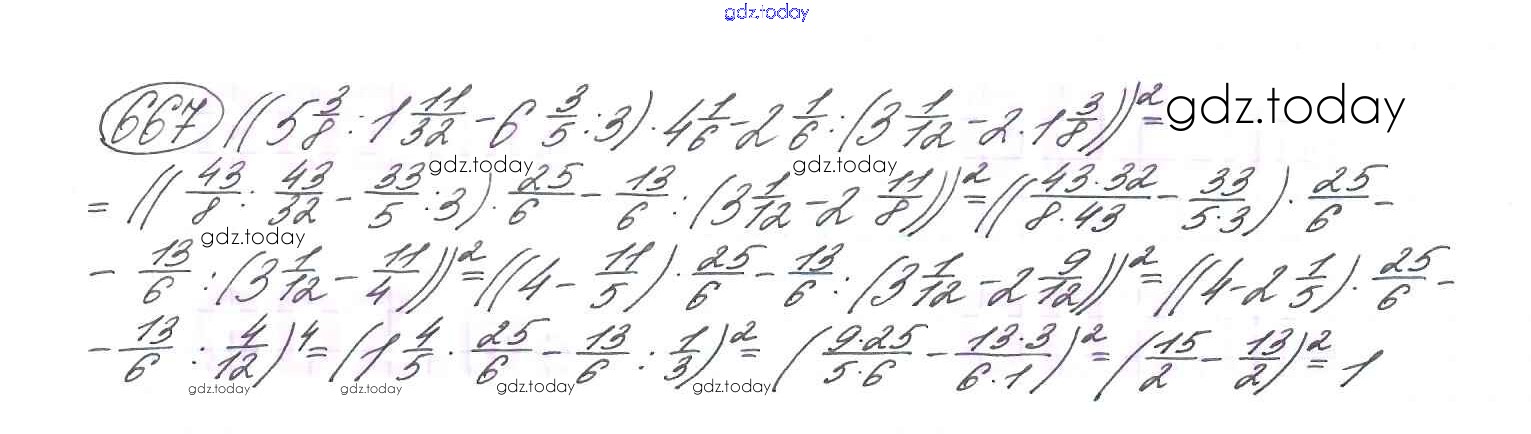 gdz.today
667 ((5 3/8 : 1 11/32 - 6 3/5 : 3) · 4 1/6 - 2 1/6 : (3 1/12 - 2 · 1 3/8))² = gdz.today
gdz.today gdz.today
= ((43/8 : 43/32 - 33/5 : 3) · 25/6 - 13/6 : (3 1/12 - 2 11/8))² = ((43·32/8·43 - 33/5·3) · 25/6 -
gdz.today
- 13/6 : (3 1/12 - 11/4))² = ((4 - 11/5) · 25/6 - 13/6 : (3 1/12 - 2 9/12))² = ((4 - 2 1/5) · 25/6 -
- 13/6 : 4/12)⁴ = (1 4/5 · 25/6 - 13/6 : 1/3)² = (9·25/5·6 - 13·3/6·1)² = (15/2 - 13/2)² = 1
gdz.today gdz.today gdz.today gdz.today